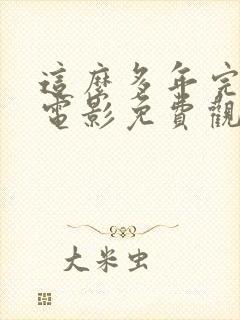 這麼多年完
電影免費觀
大米虫